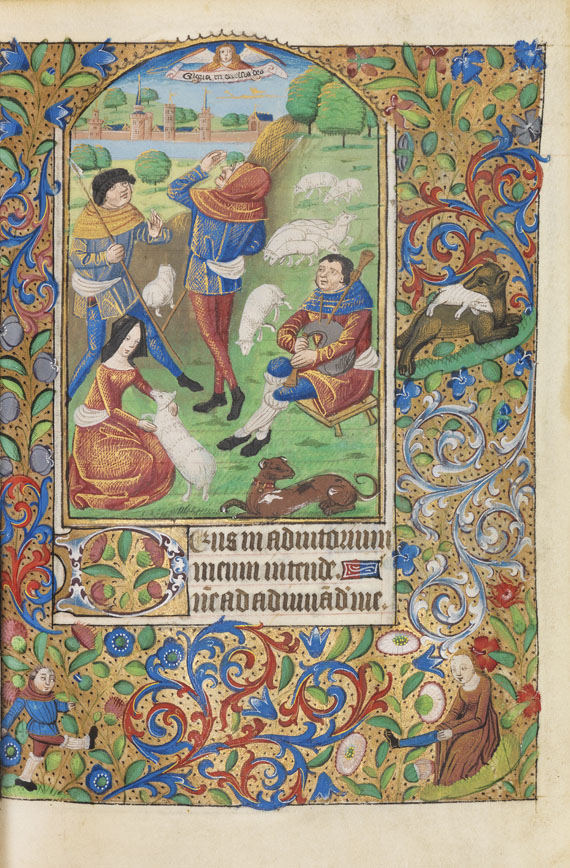 Gloria in excelsis deo
Deus in adiutorium
meum intende.
Dñe ad adiuuãd' me.